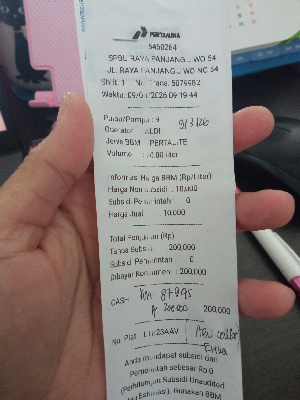 PERTAMINA
5450264
SPBU RAYA PANJANG JIWO 54
JL. RAYA PANJANG JIWO NO 54
Shift: 1 No. Trans: 5079982
Waktu: 09/03/2026 09:19:44
Pulau/Pompa : 9
9/3/26
Operator : ALDI
Jenis BBM : PERTALITE
Volume : 20.00 liter
Informasi Harga BBM (Rp/Liter)
Harga Non subsidi : 10,000
Subsidi Pemerintah : 0
Harga Jual : 10,000
Total Penjualan (Rp)
Tanpa Subsidi : 200,000
Subsidi Pemerintah : 0
Dibayar Konsumen : 200,000
CASH
km 87995
200.000
200,000
No. Plat
Anda mendapat subsidi dari
Pemerintah sebesar Rp 0
(Perhitungan Subsidi Unaudited
Gunakan BBM